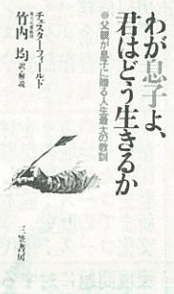 わが息子よ、
君はどう生きるか
●父親が息子に贈る人生最大の教訓
チェスターフィールド
竹内 均 訳・解説
三笠書房